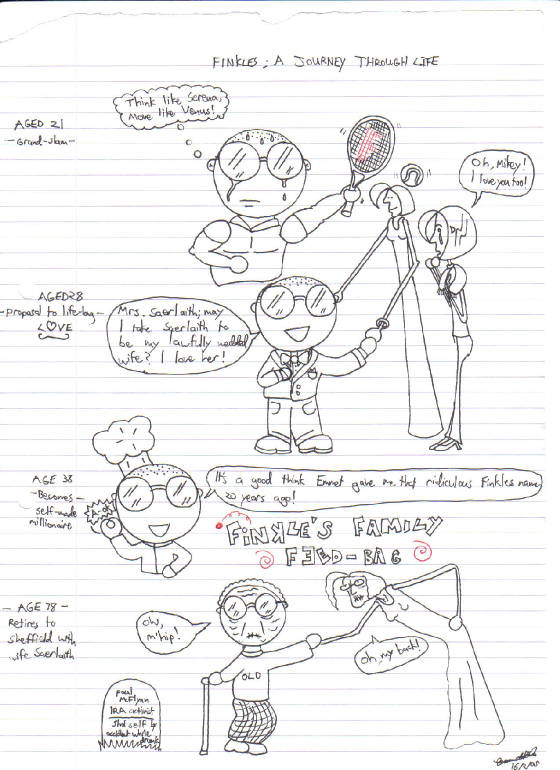 FINKLES; A JOURNEY THROUGH LIFE
AGED 21
- Grand-slam -
Think like Serena,
Move like Venus!
Oh, Mikey!
I love you too!
AGED 28
- Proposal to life-long -
LOVE
Mrs. Saerlaith; may
I take Saerlaith to
be my lawfully wedded
wife? I love her!
AGE 38
- Becomes -
self-made
millionaire
It's a good think Emmet gave me that ridiculous Finkles name
20 years ago!
FINKLE'S FAMILY
FEED-BAG
- AGE 78 -
Retires to
Sheffield with
wife Saerlaith
Ow,
m'hip!
OLD
Oh, my back!
Paul
McFlynn
IRA activist
Shot self by
accident while
drunk